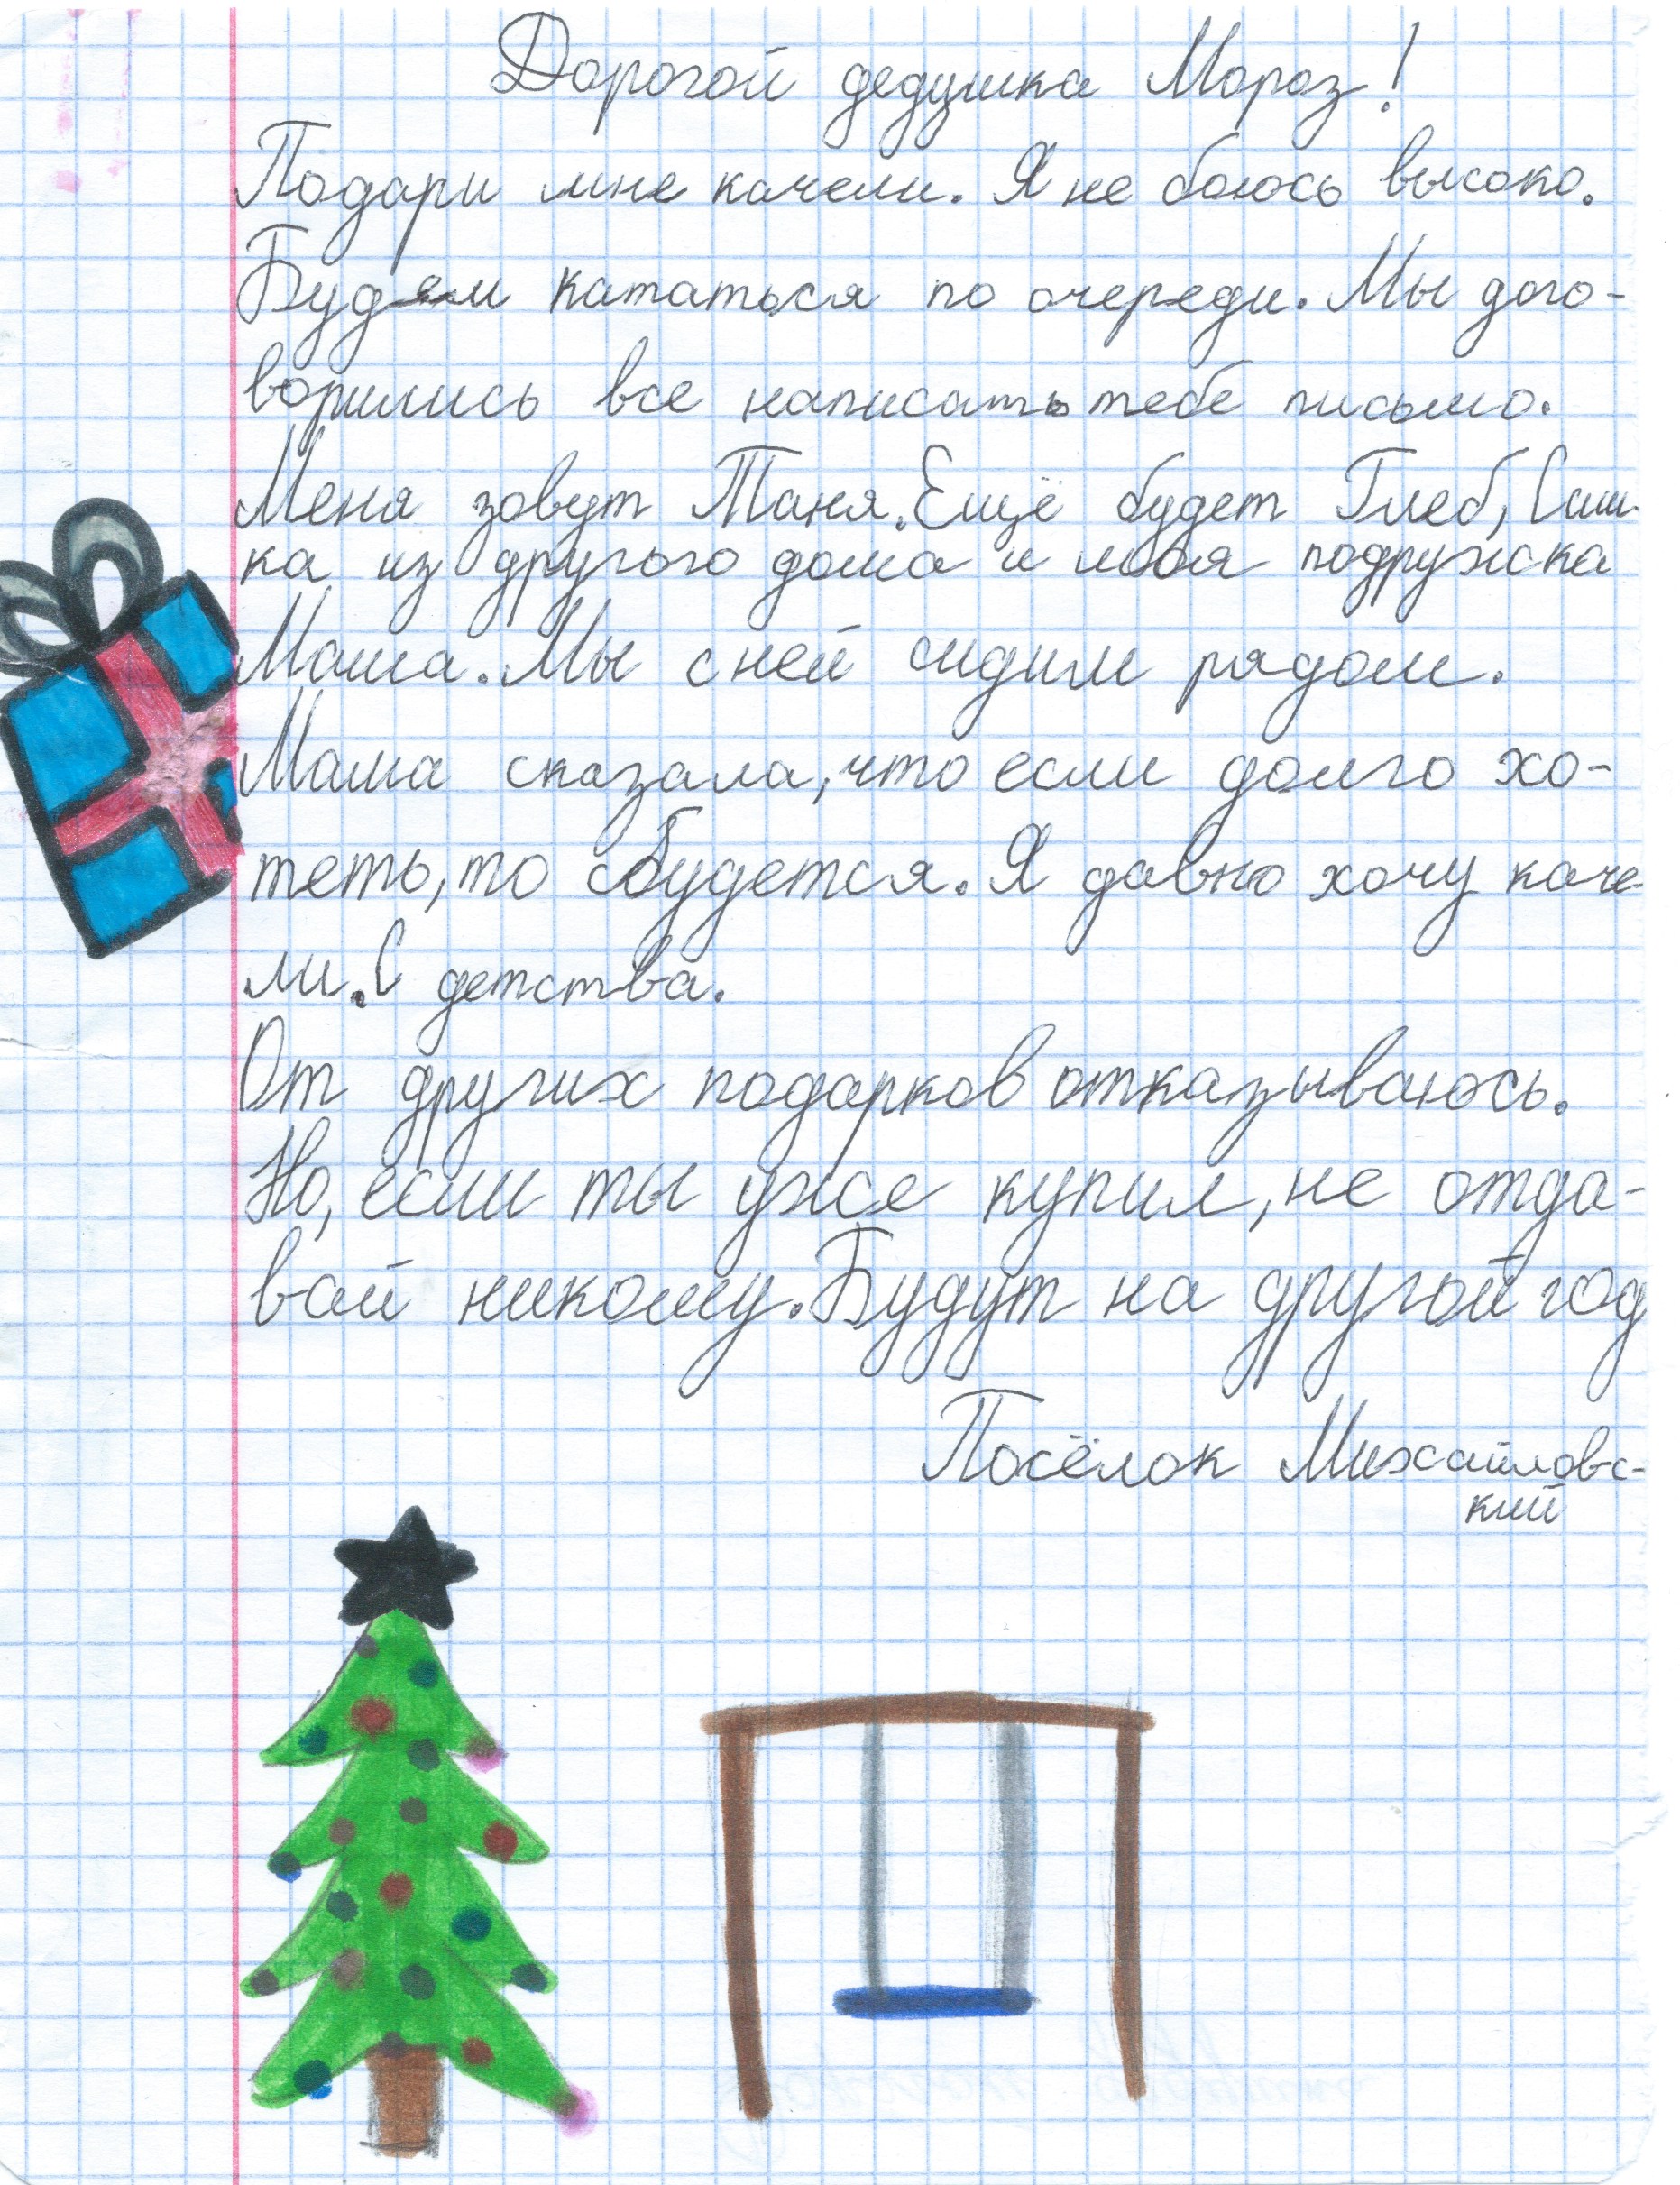 Дорогой дедушка Мороз!
Подари мне качели. Я не боюсь высоко.
Будем кататься по очереди. Мы дого-
ворились все написать тебе письмо.
Меня зовут Таня. Ещё будет Глеб, Саш-
ка из другого дома и моя подружка
Маша. Мы с ней сидим рядом.
Мама сказала, что если долго хо-
теть, то сбудется. Я давно хочу каче-
ли. С детства.
От других подарков отказываюсь.
Но, если ты уже купил, не отда-
вай никому. Будут на другой год
Посёлок Михайловс-
кий